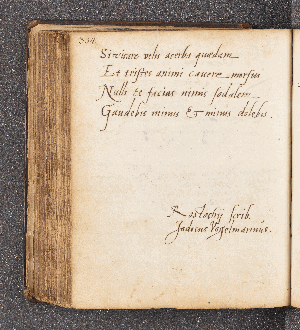 334.
Si vitare velis acerba quaedam
Et tristes animi cavere morsus
Nulli te facias nimis sodalem
Gaudebis minus & minus dolebis.
Rostochij scrib.
Vogelmannus.